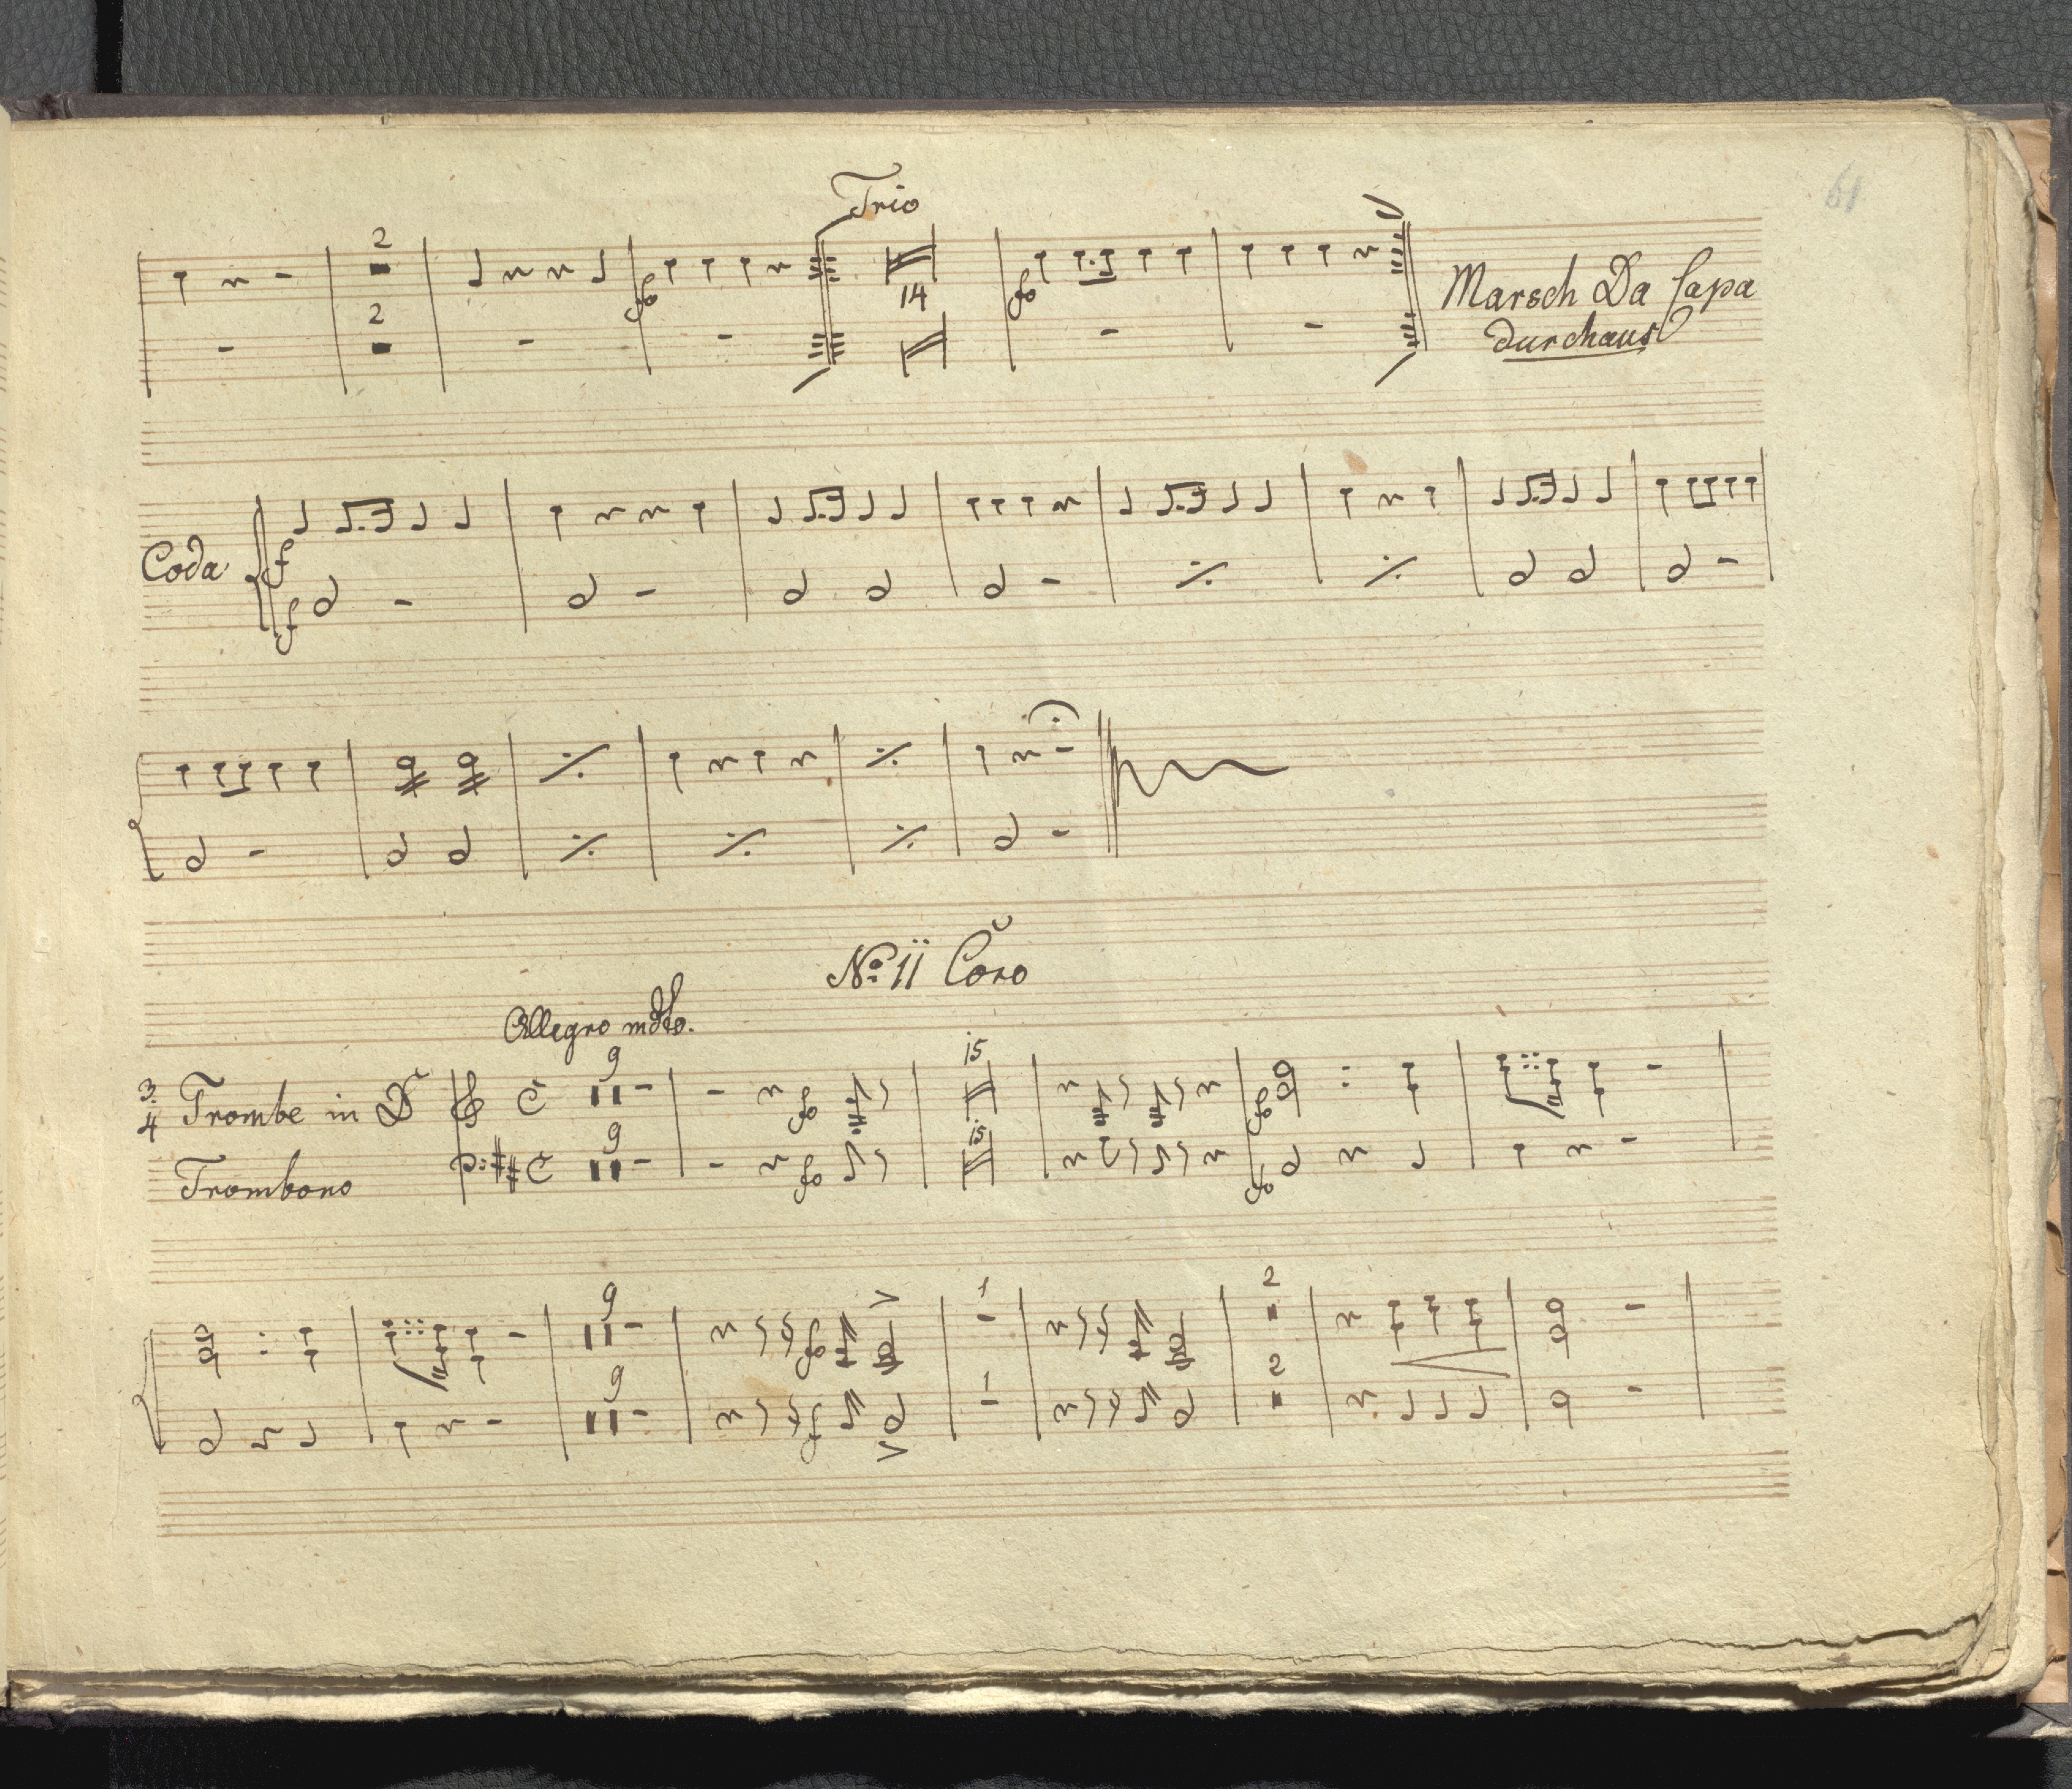 61
Trio
2
14
2
Marsch Da Capa
durchaus
Coda
f
f
No: 11 Coro
Allegro mdto.
9
15
3.
4 Trombe in D
C
fo
fo
9
15
Trombono
C
fo
fo
9
1
2
fo
9
1
2
f